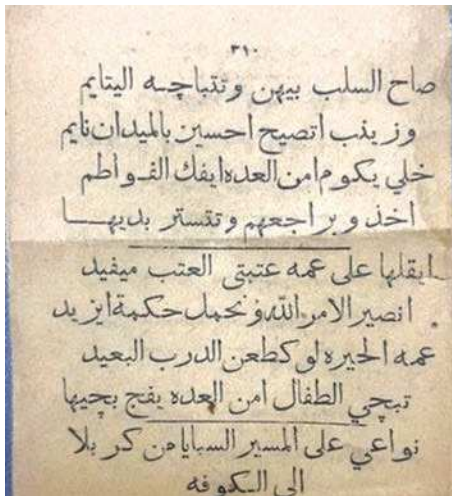 ٣١٠
صاح السلب بيهن وتتباچه اليتايم
وزينب اتصيح احسين بالميدان نايم
خلي يكوم امن العده ايفك الفواطم
اخذ ويراجعهم وتتستر بديها
ايقلها علي عمه عتبتي العتب ميفيد
انصير الامر الله ونحمل حكمة ايزيد
عمه الحيره لو كطعن الدرب البعيد
تبچي الطفال امن العده يفج بچيها
نواعي على المسير السبايا من كربلا
الى الكوفه